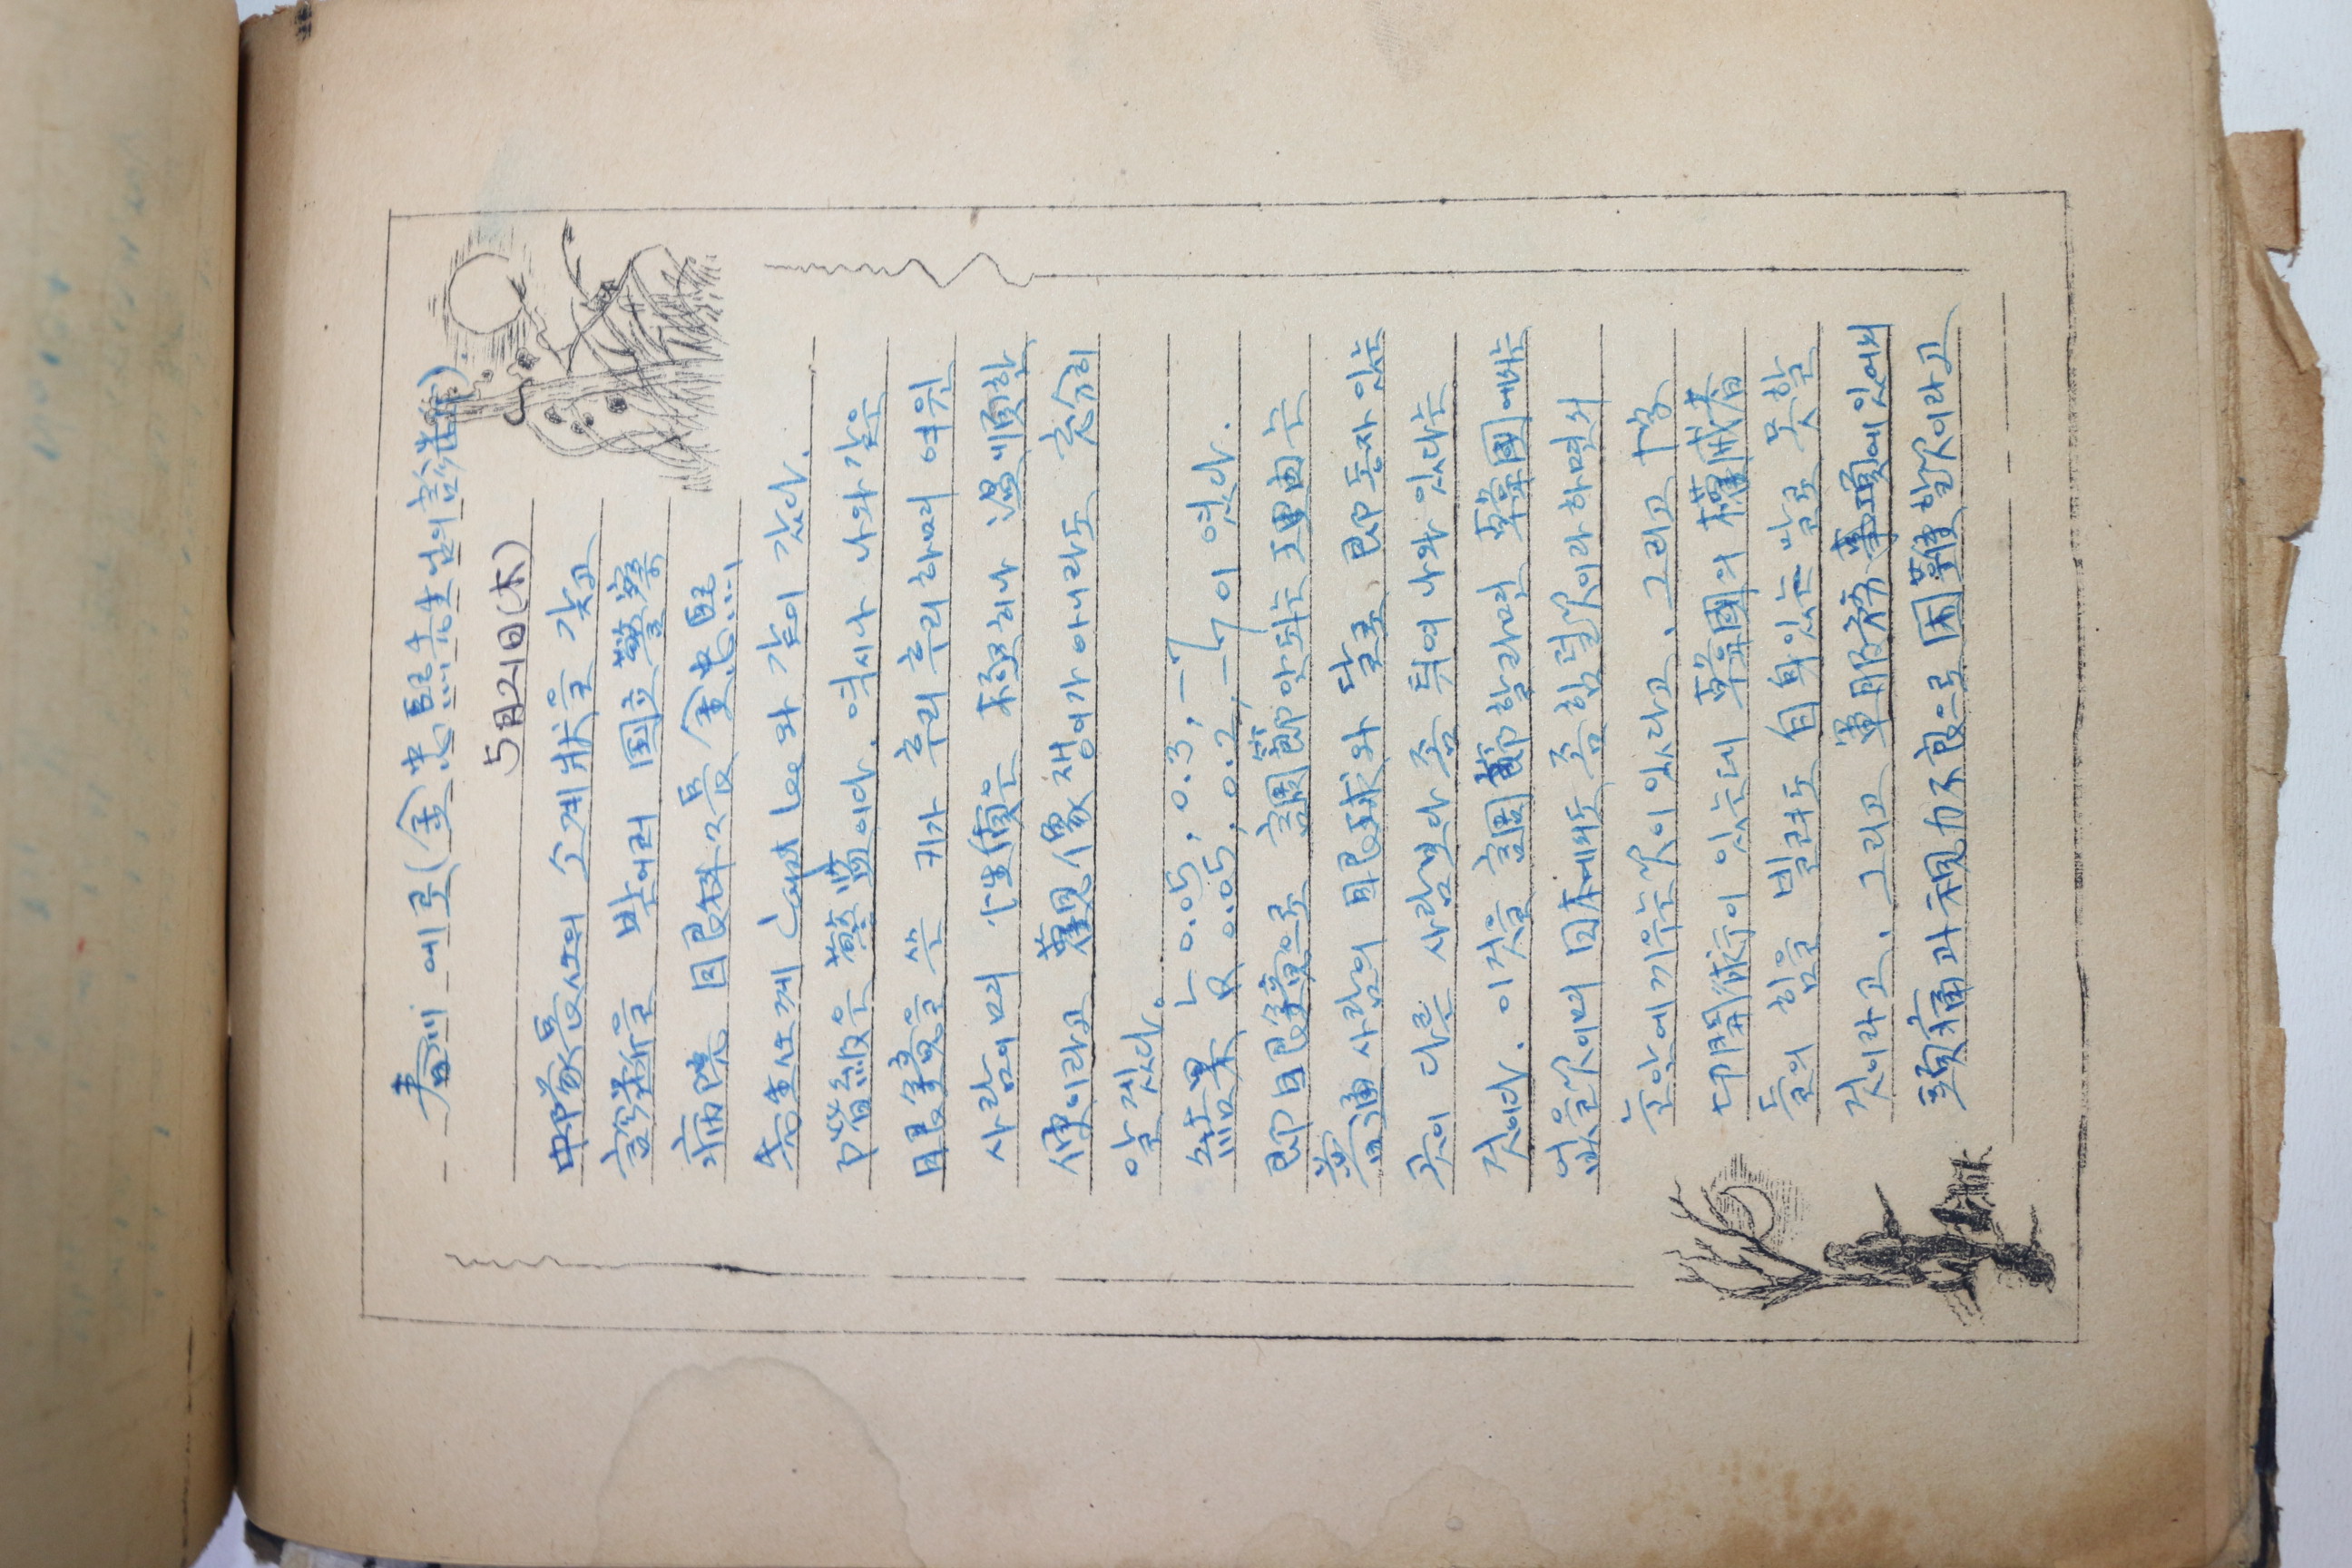 春川 에로(金忠熙先生님의 診断)
5月21日(木)
中隊長任의 소개狀을 갖고
診斷을 받어러 国立警察
病院 眼科々長 金忠熙
先生任께 Capt Lee와 같이 갔다.
階級은 警監이다. 역시나 나와 같은
眼鏡을 쓴 키가 후리후리하며 여윈
사람이며 性質은 極히나 溫順한
便이라고 觀像쟁이가 아니라도 充分히
알겠다.
結果 L 0.05, 0.3, -7
R 0.05, 0.2, -7이 였다.
即 眼鏡으로 調節안되는 理由는
普通사람의 眼球와 달로 即 동자 있는
곳이 다른 사람보다 좀 튀여 나와 있다는
것이다. 이것을 調節할라면 韓國에서는
없을것이며 日本에서도 좀 힘덜것이라 하면서
눈안에 끼우는것이 있다고. 그리고 十字
切開術이 있는데 韓國의 權威者
들의 힘을 빌려도 自身있는 말로 못할
것이라고. 그리고 軍服務 事項에 있어서
頭痛과 視力不良으로 困難할것이라고